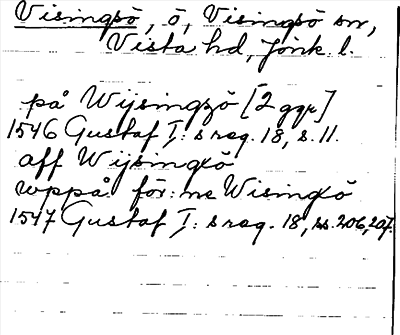 Visingsö, ö, Visingsö sn,
Vista hd, Jönk. l.
på Wijsingzö [2 ggr]
1546 Gustaf I:s reg. 18, s. 11.
aff Wijsingxö
wppå för:ne Wisingxö
1547 Gustaf I:s reg. 18, ss. 206, 207.